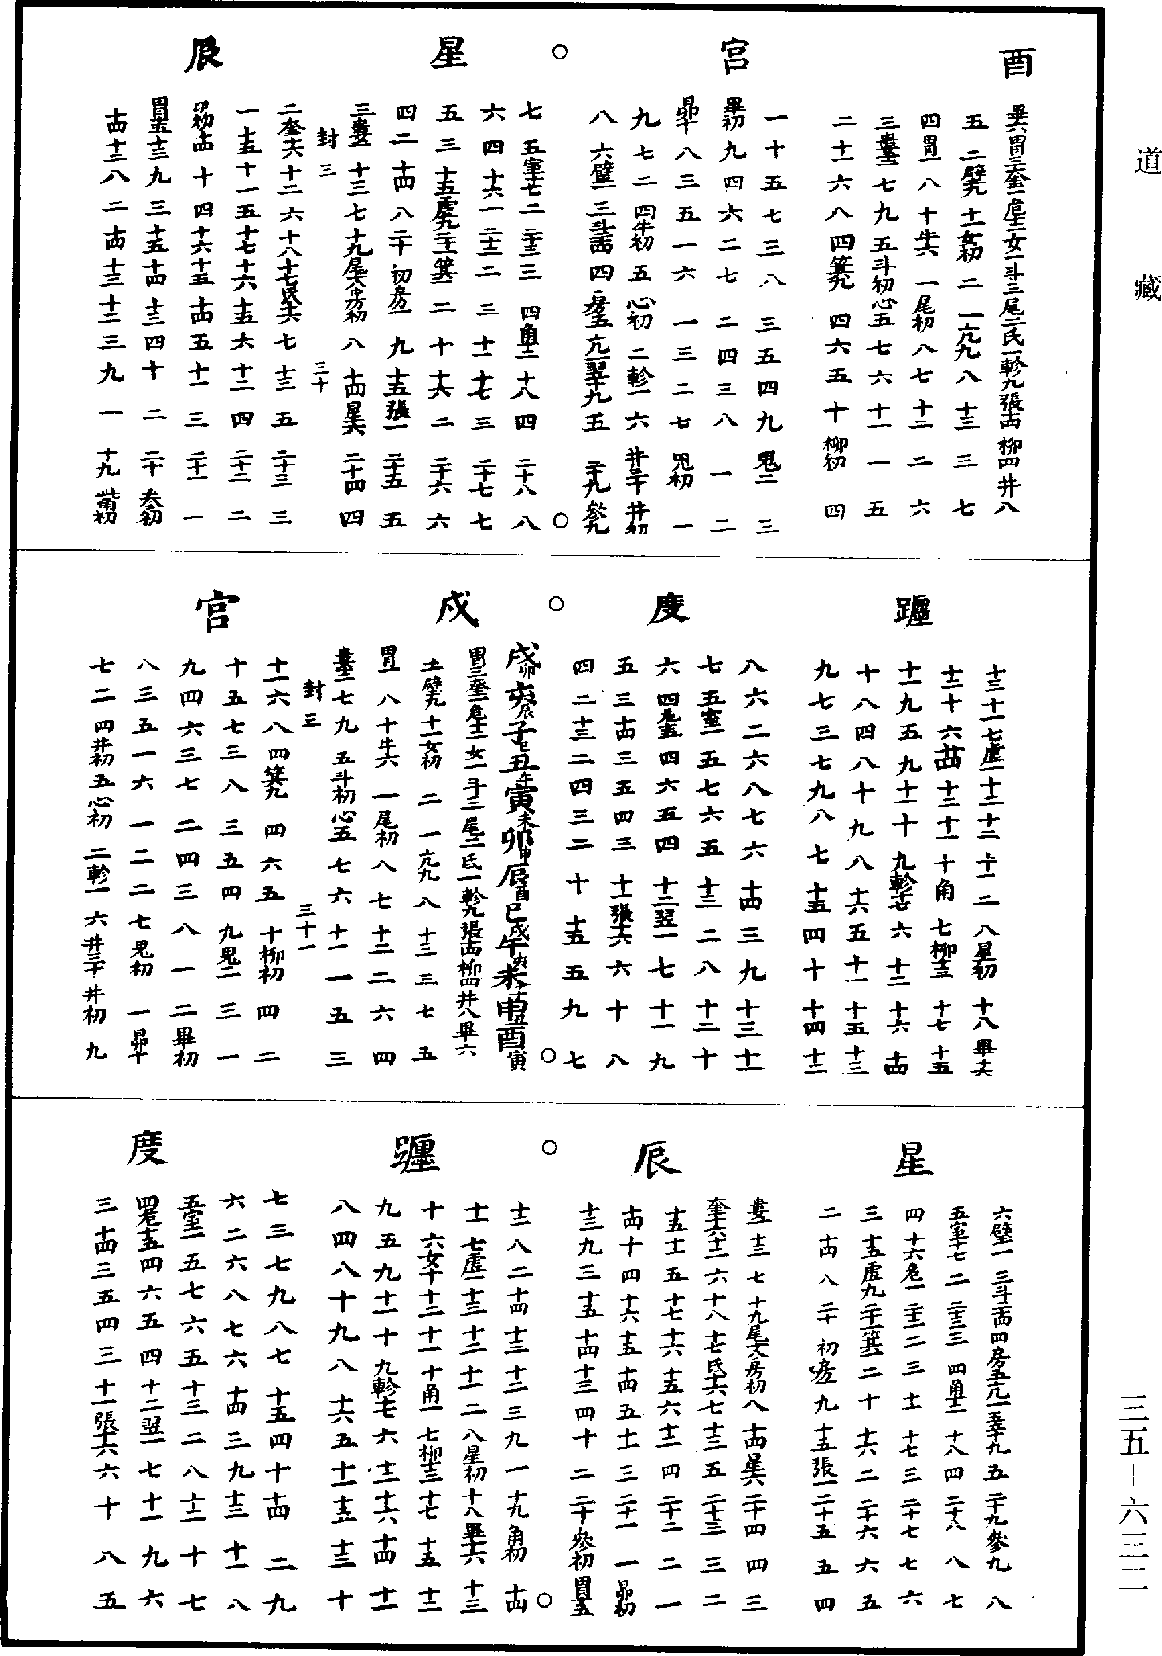 道藏
酉
宮
星
辰
畢六胃三奎一危十二女一斗三尾二氐一軫九張十四柳四井八
五二壁九十一女初二一六九九八十三三七
四胃一八十牛六一尾初八七十二二六
三婁十一七九五斗初心五七六十一一五
二十一六八四箕九四六五十柳初四
一十五七三八三五四九鬼二三
畢初九四六二七二四三八一二
昴十八三五一六一三二七鬼初一
九七二四牛初五心初二軫一六井三十井初
八六壁一三斗二十四四房五亢一翌十九五二十九參九
七五室十七二二十三三四角十二十八四二十八八
六四十六一二十二二三十一十七三二十七七
五三十五虛九二十一箕二十十六二二十六六
四二十四八二十初房一九十五張一二十五五
三婁十三七十九尾十八房初八十四星六二十四四
封三 三十
二奎十六十二六十八十七氐十六七十三五二十三三
一十五十一五十七十六十五六十二四二十二二
昴初十四十四十六十五十四五十一三二十一一
胃十五十三九三十五十四十三四十二二十參初
十四十二八二十四十三十二三九一十九觜初
躔
度
戌
宮
十三十一七虛一十三十二十一二八星初十八畢十六
十二十六女十四十二十一十角一七柳十三十七十五
十一九五九十一十九軫十七六十二十六十四
十八四八十九八十六五十一十五十三
九七三七九八七十五四十十四十二
八六二六八七六十四三九十三十一
七五室一五七六五十三二八十二十
六四危十五四六五四十二翌一七十一九
五三十四三五四三十一張十六六十八
四二十三二四三二十十五五九七
戌卯亥辰子巳丑午寅未卯申辰酉巳戌午亥未子申丑酉寅
胃三奎一危十二女一斗三尾二氐一軫九張十四柳四井八畢六
土壁九十一女初二一六九九八十三三七五
胃一八十牛六一尾初八七十二二六四
婁十一七九五斗初心五七六十一一五三
封三 三十一
十一六八四箕九四六五十柳初四二
十五七三八三五四九鬼二三一
九四六三七二四三八一二畢初
八三五一六一二二七鬼初一昴十
七二四井初五心初二軫一六井三十井初九
星
辰
躔
度
六壁一三斗二十四四房五亢一翌十九五二十九參九八
五室十七二二十三三四角十二十八四二十八八七
四十六危一二十二二三十一十七三二十七七六
三十五虛九二十一箕二十十六二二十六六五
二十四八二十初房九十五張一二十五五四
婁十三七十九尾十八房初八十四星六二十四四三
奎十六十二六十八十七氐十六七十三五二十三三二
十五十一五十七十六十五六十二四二十二二一
十四十四十六十五十四五十一三二十一一昴初
十三九三十五十四十三四十二二十參初胃十五
十二八二十四十三十二三九一十九角初十四
十一七虛一十三十二十一二八星初十八畢十六十三
十六女十十二十一十角一七柳十三十七十五十二
九五九十一十九軫十七六十二十六十四十一
八四八十九八十六五十一十五十三十
七三七九八七十五四十十四二九
六二六八七六十四三九十三十一八
五室一五七六五十三二八十二十七
四危十五四六五四十二翌一七十一九六
三十四三五四三十一張十六六十八五
三五—六三二